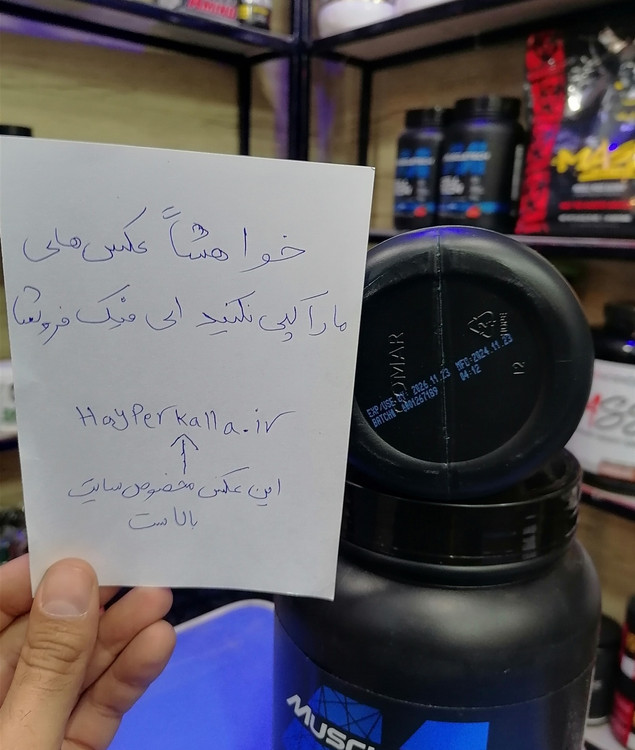 خواهشاً عکس های
ما را کپی نکنید ای فیک فروشا
HayPerkalla.ir
این عکس مخصوص سایت
بالاست
COMAR
HDPE
12
EXP/USE BY: 2026.11.23 MFG:2024.11.23
04:12
MUSCL